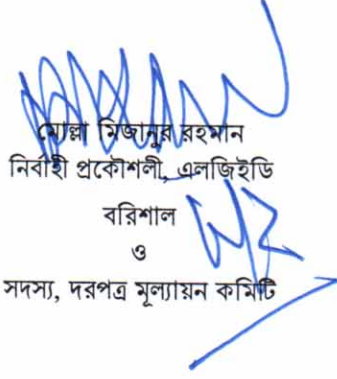 মোল্লা মিজানুর রহমান
নির্বাহী প্রকৌশলী, এলজিইডি
বরিশাল
ও
সদস্য, দরপত্র মূল্যায়ন কমিটি